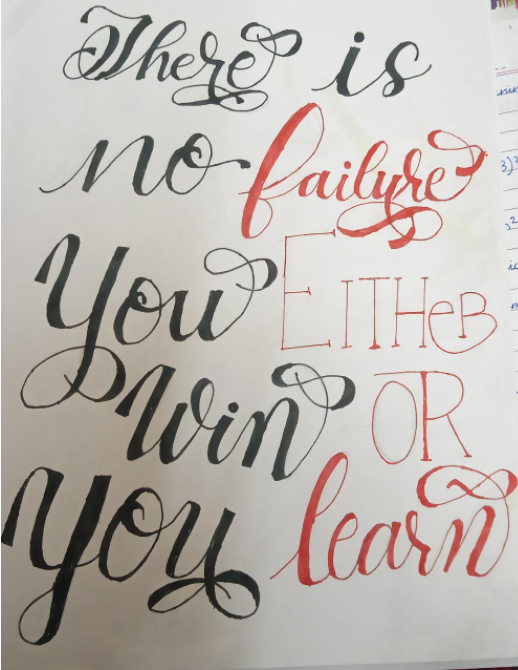 There is
no failure
You EITHeB
Win OR
You learn